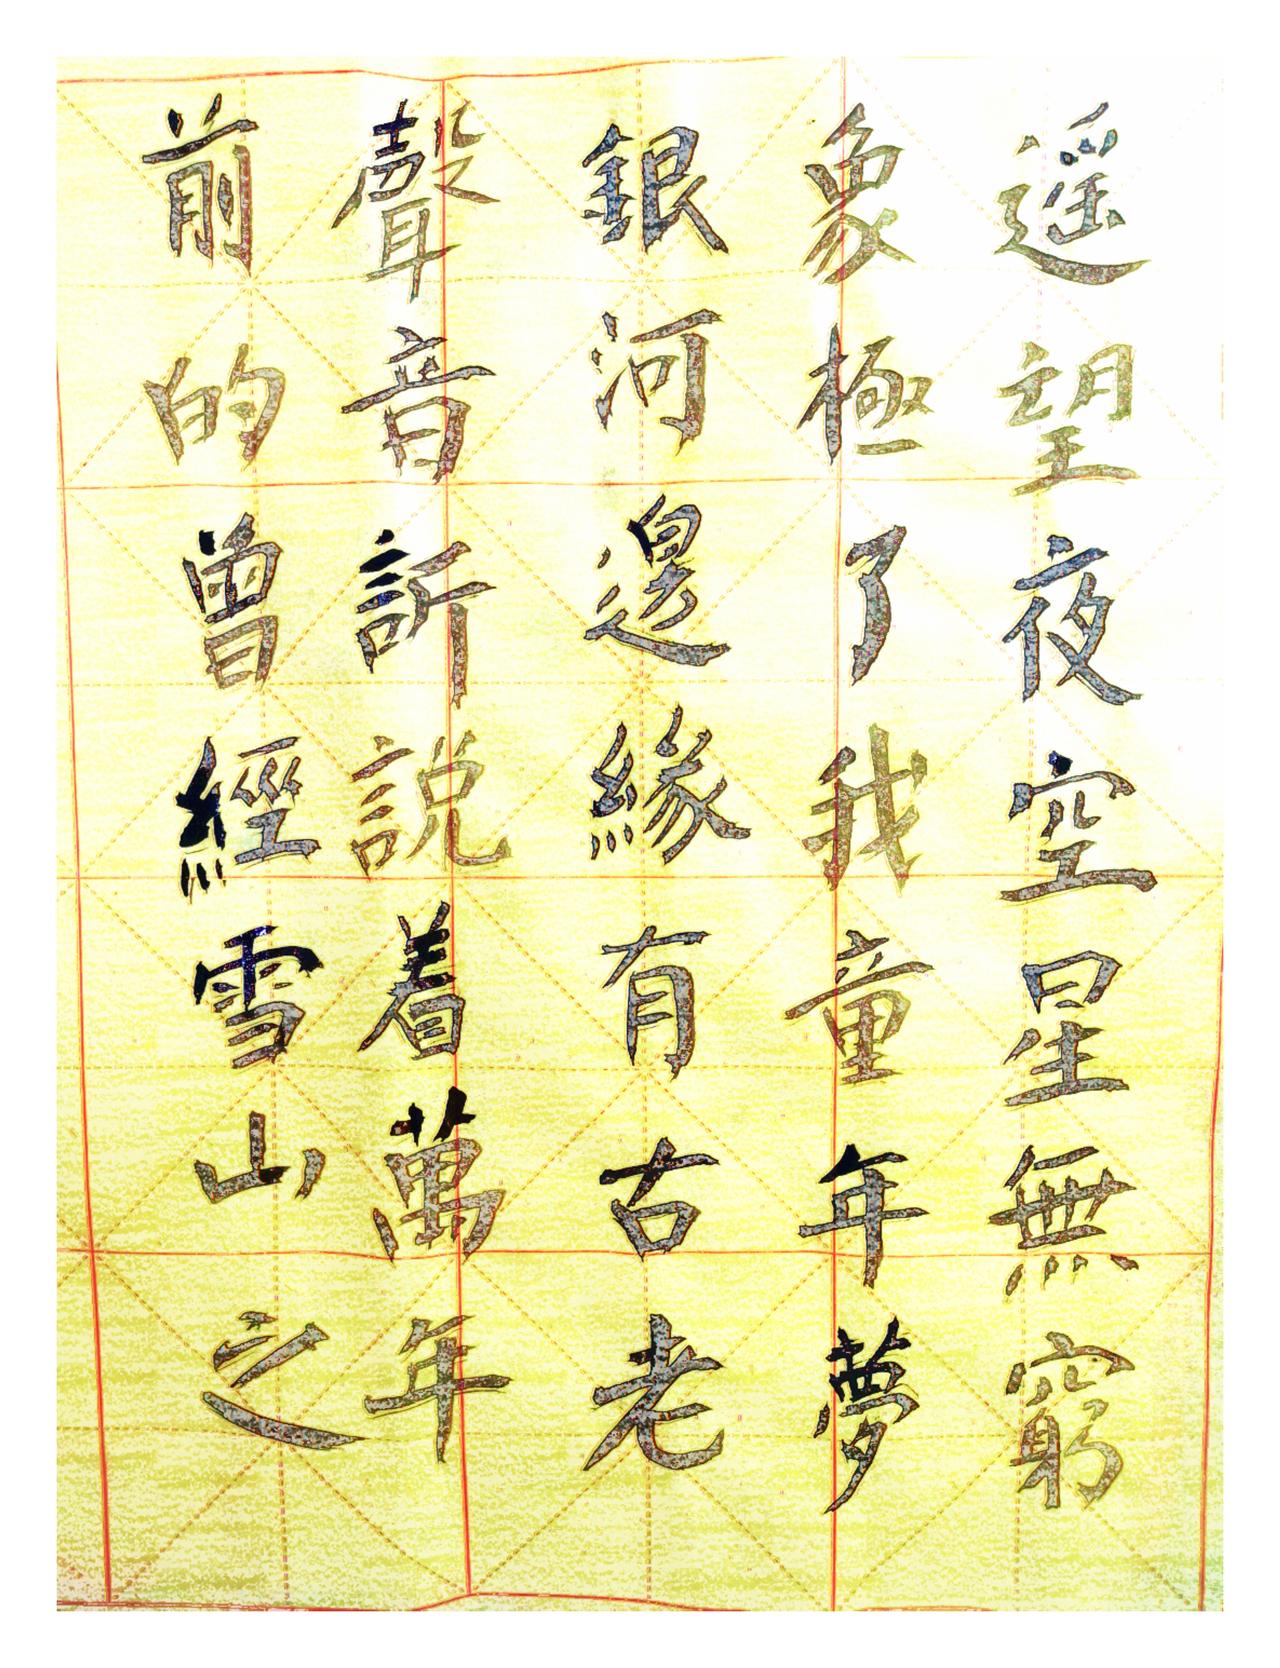 遥望夜空星無窮
象極了我童年夢
銀河邊緣有古老
聲音訢説着萬年
前的曾經雪山之